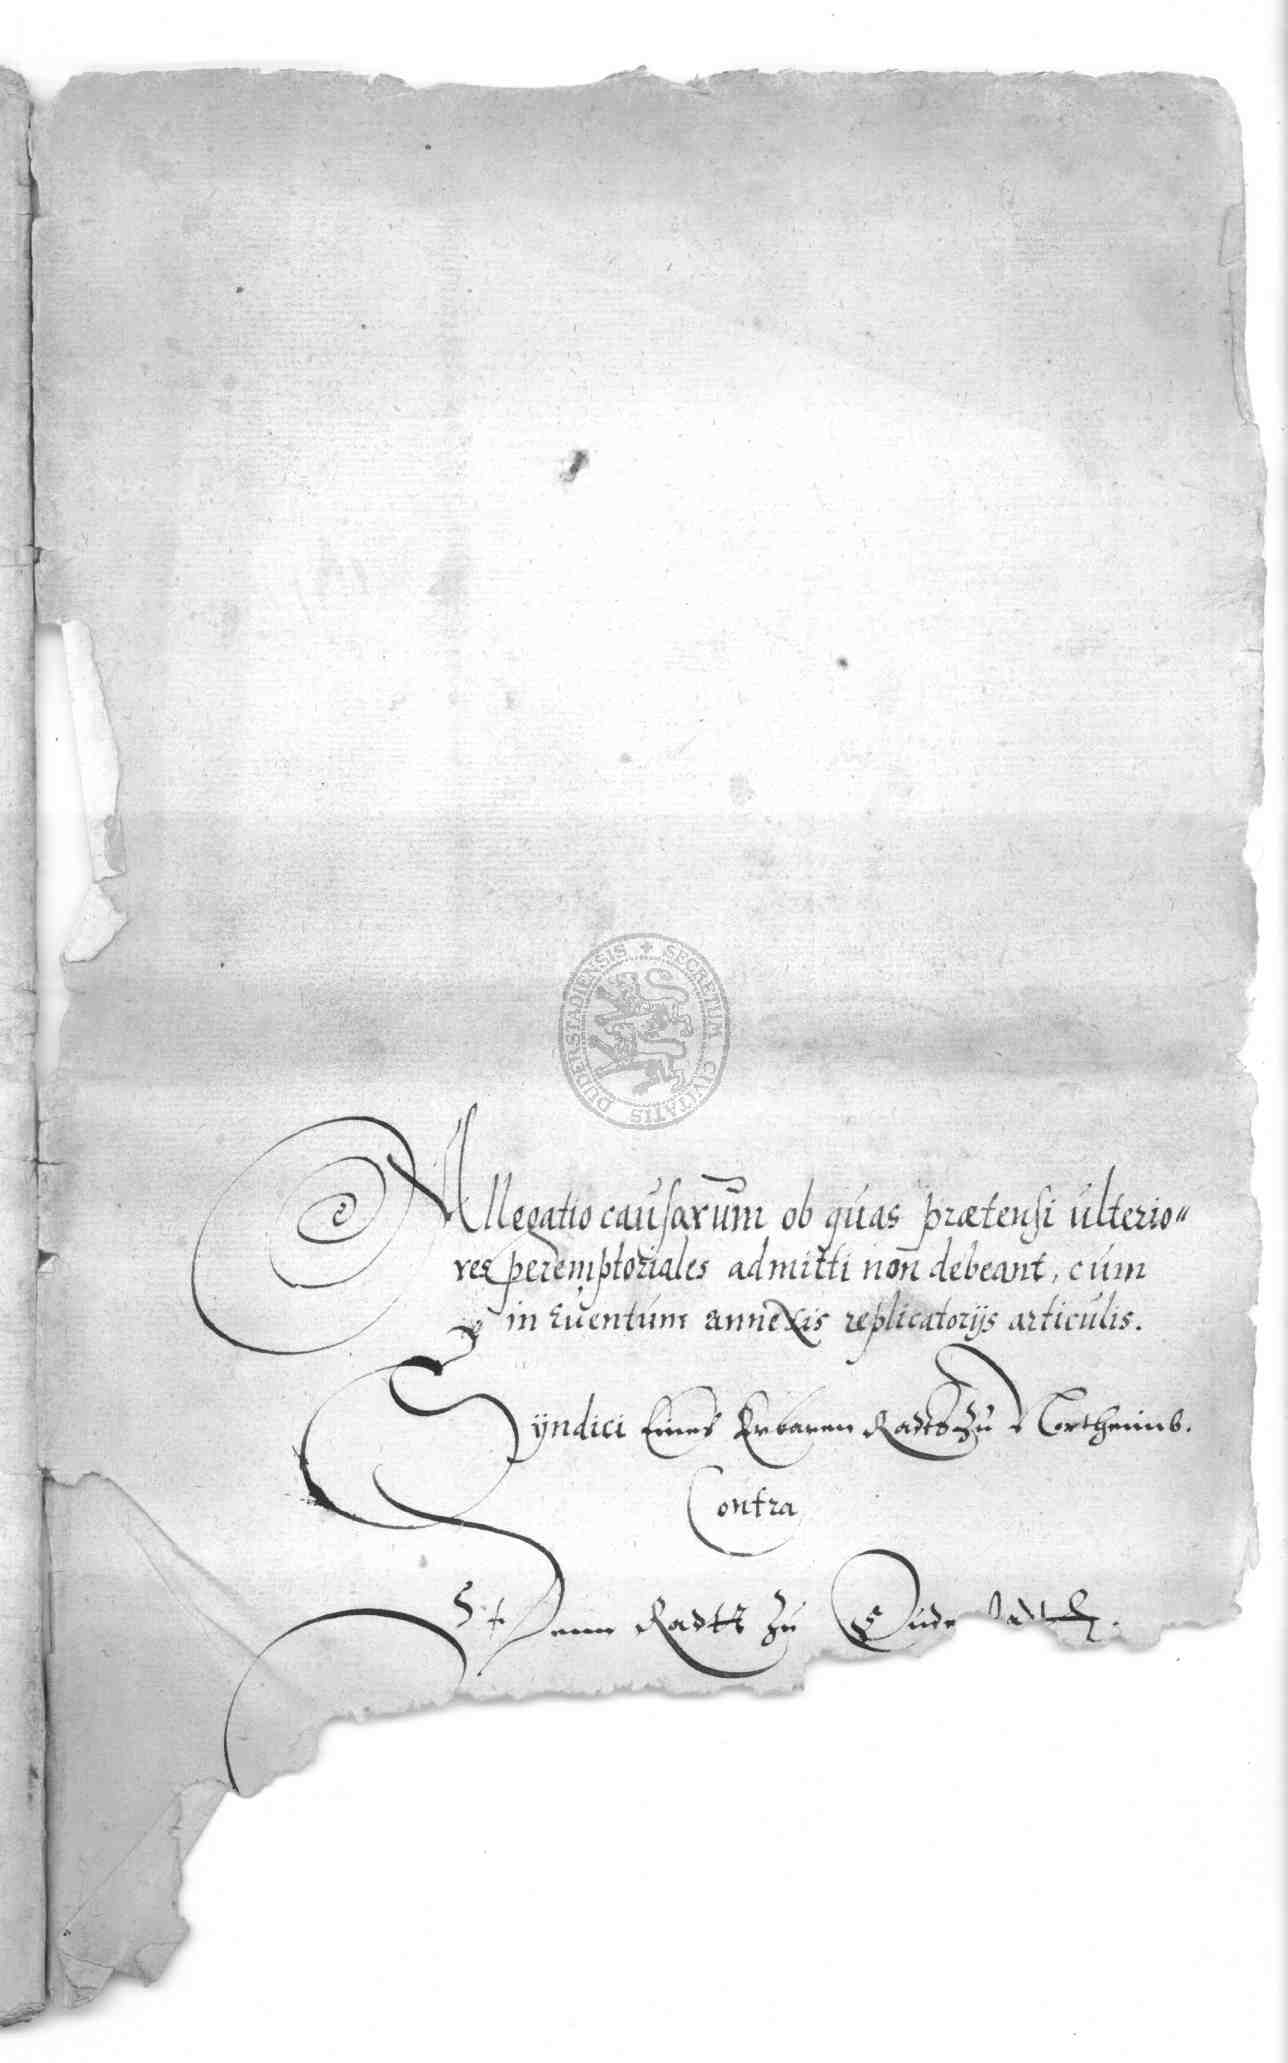 SECRETUM CIVITATIS DUDERSTADIENSIS
Allegatio causarum ob quas prætensi ulterio=
res peremptoriales admitti non debeant, cum
in Euentum annexis replicatorijs articulis.
Syndici Eines Erbaren Radts zu Northeimb.
Contra
Denn Radtt zu Dude